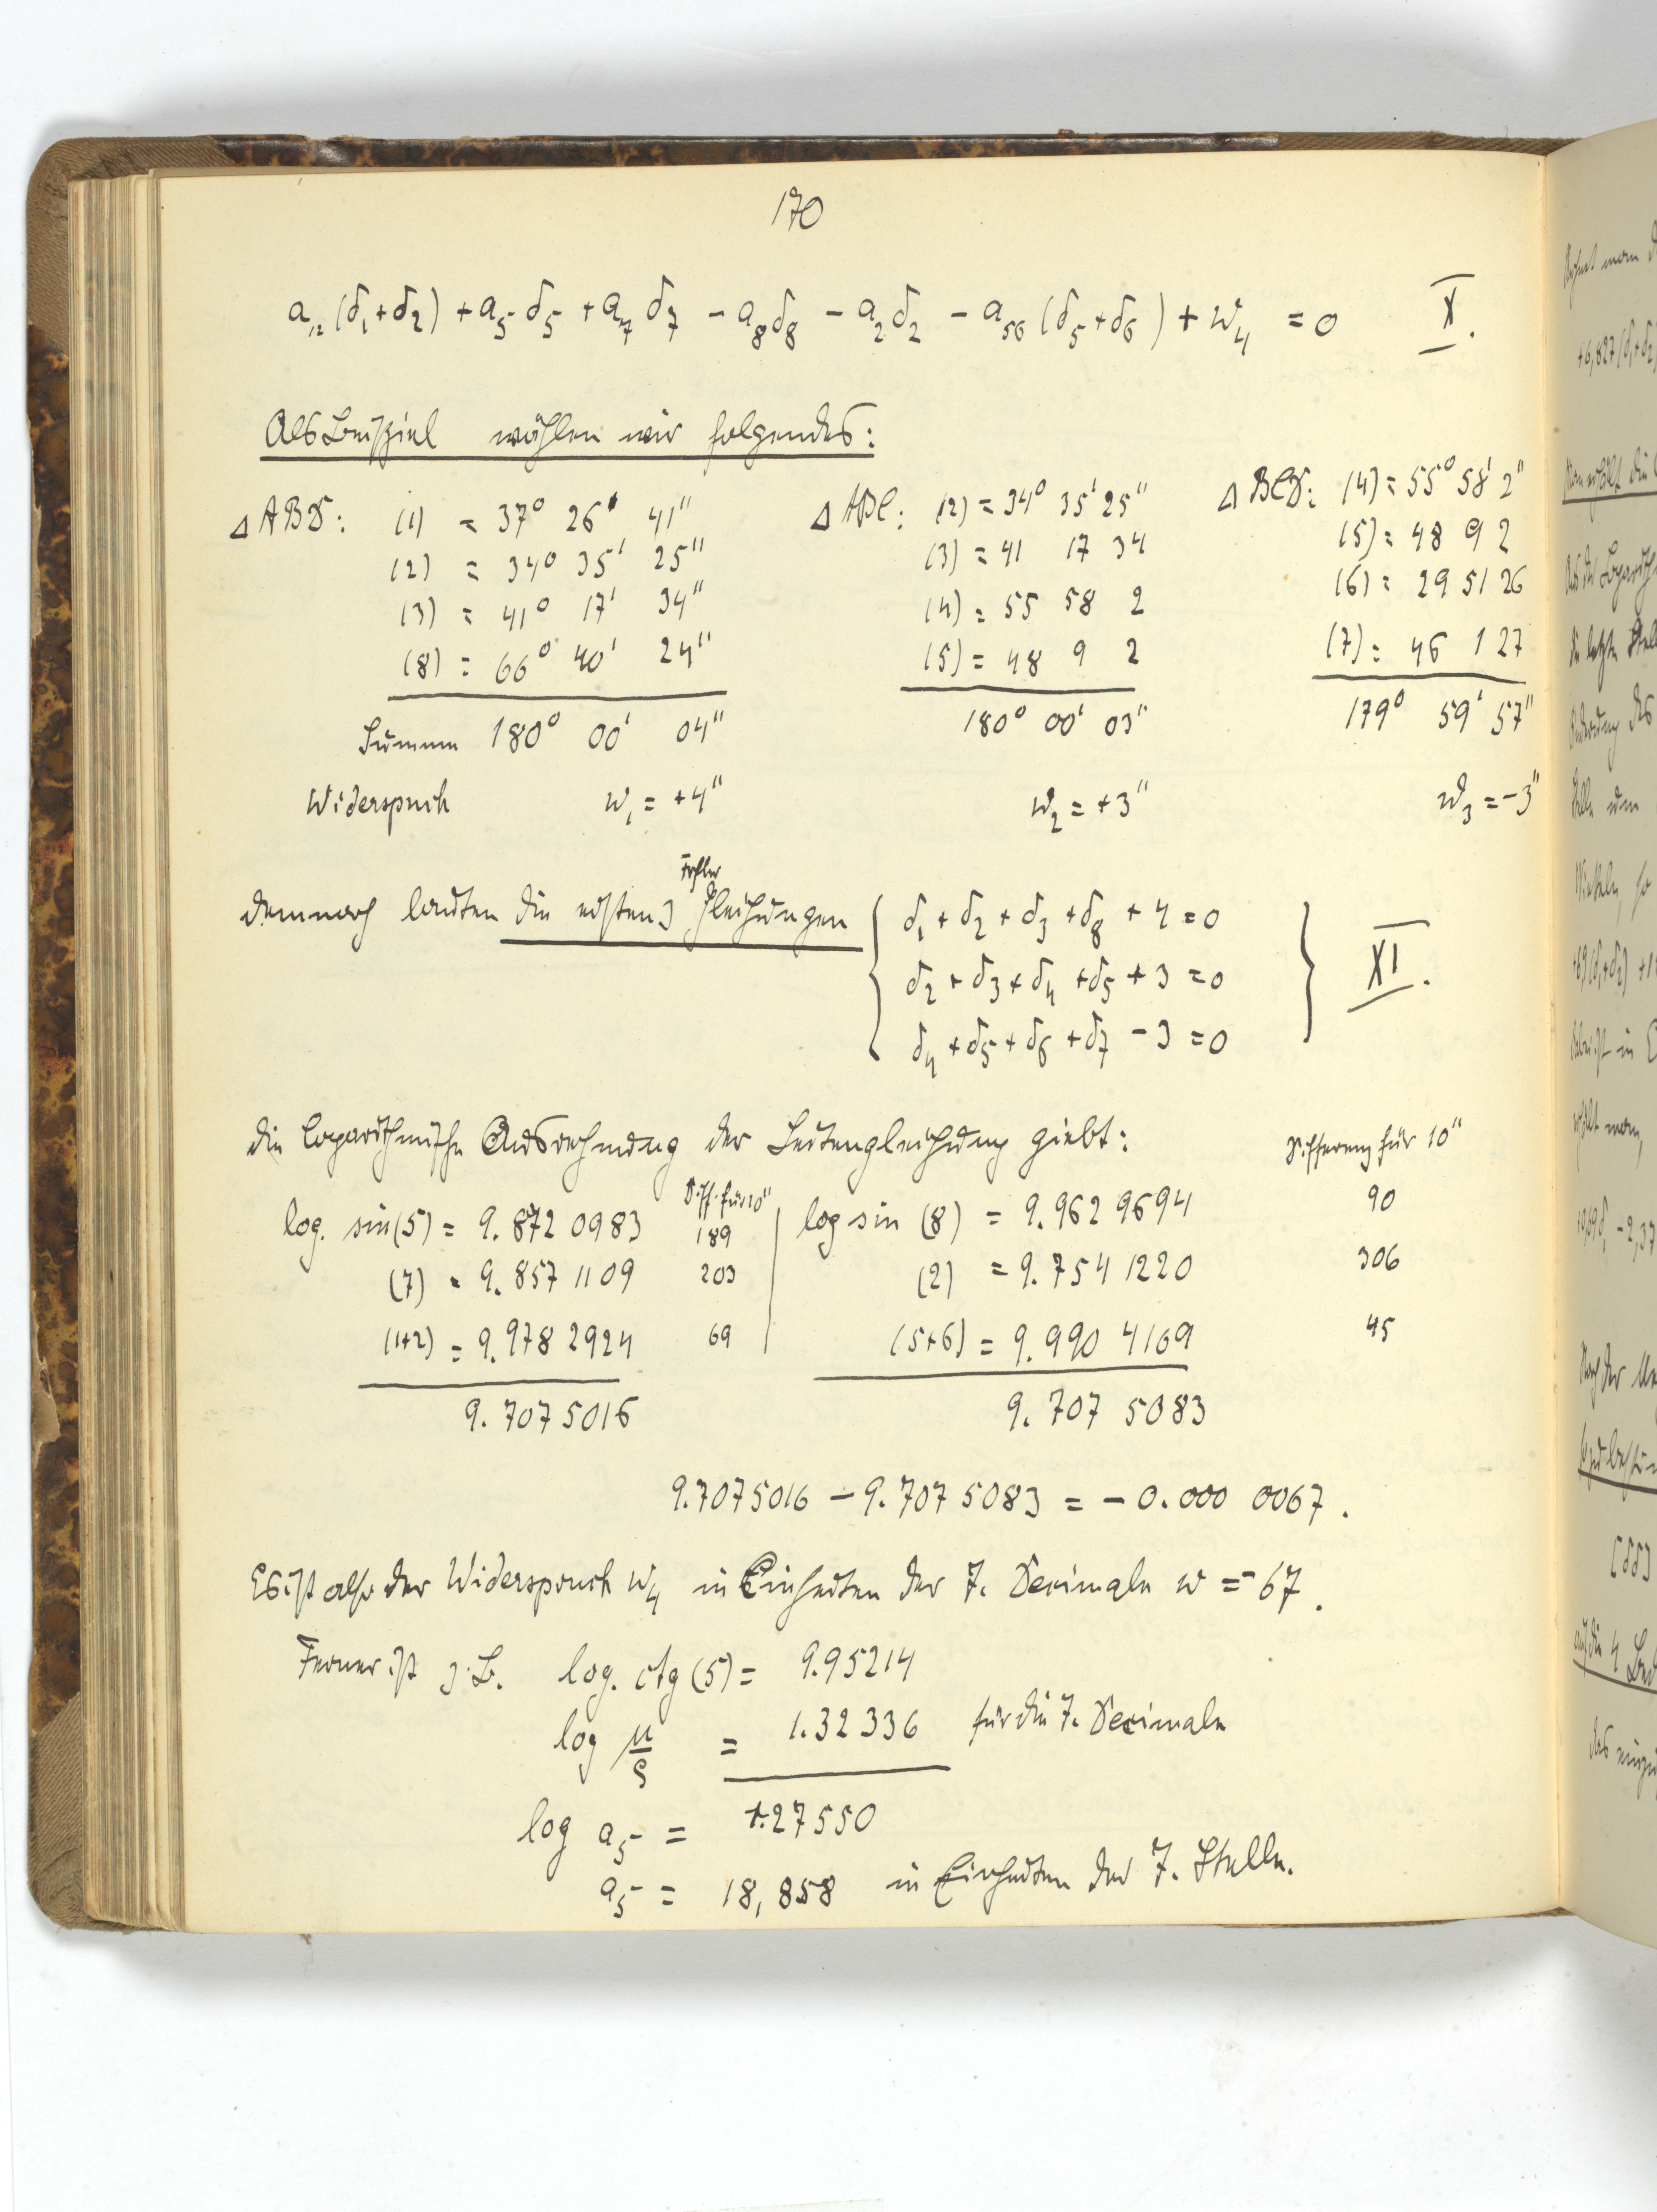 170
a₁₂(δ₁+δ₂) + a₅δ₅ + a₇δ₇ - a₈δ₈ - a₂δ₂ - a₅₆(δ₅+δ₆) + w₄ = 0 X.
Als Beispiel wählen wir folgendes:
△ ABD: (1) = 37° 26' 41" △ ABC: (2) = 34° 35' 25" △ BCD: (4) = 55° 58' 2"
(2) = 34° 35' 25" (3) = 41 17 34 (5) = 48 9 2
(3) = 41° 17' 34" (4) = 55 58 2 (6) = 29 51 26
(8) = 66° 40' 24" (5) = 48 9 2 (7) = 46 1 27
Summen 180° 00' 04" 180° 00' 03" 179° 59' 57"
Widerspruch w₁ = +4" w₂ = +3" w₃ = -3"
Fehler
demnach lauten die ersten 3 gleichungen { δ₁ + δ₂ + δ₃ + δ₈ + 4 = 0
δ₂ + δ₃ + δ₄ + δ₅ + 3 = 0 } XI.
δ₄ + δ₅ + δ₆ + δ₇ - 3 = 0
die logarithmische Ausrechnung der Seitengleichung giebt: Differenz für 10"
Diff. für 10"
log. sin(5) = 9.872 0983 189 log sin (8) = 9.962 9694 90
(7) = 9.857 1109 203 (2) = 9.754 1220 306
(1+2) = 9.978 2924 69 (5+6) = 9.990 4169 45
9.707 5016 9.707 5083
9.7075016 - 9.707 5083 = - 0.000 0067.
Es ist also der Widerspruch w₄ in Einheiten der 7. Decimale w = - 67.
Ferner ist z.B. log. ctg (5) = 9.95214
log μ/ρ = 1.32336 für die 7. Decimale
log a₅ = 1.27550
a₅ = 18,858 in Einheiten der 7. Stelle.